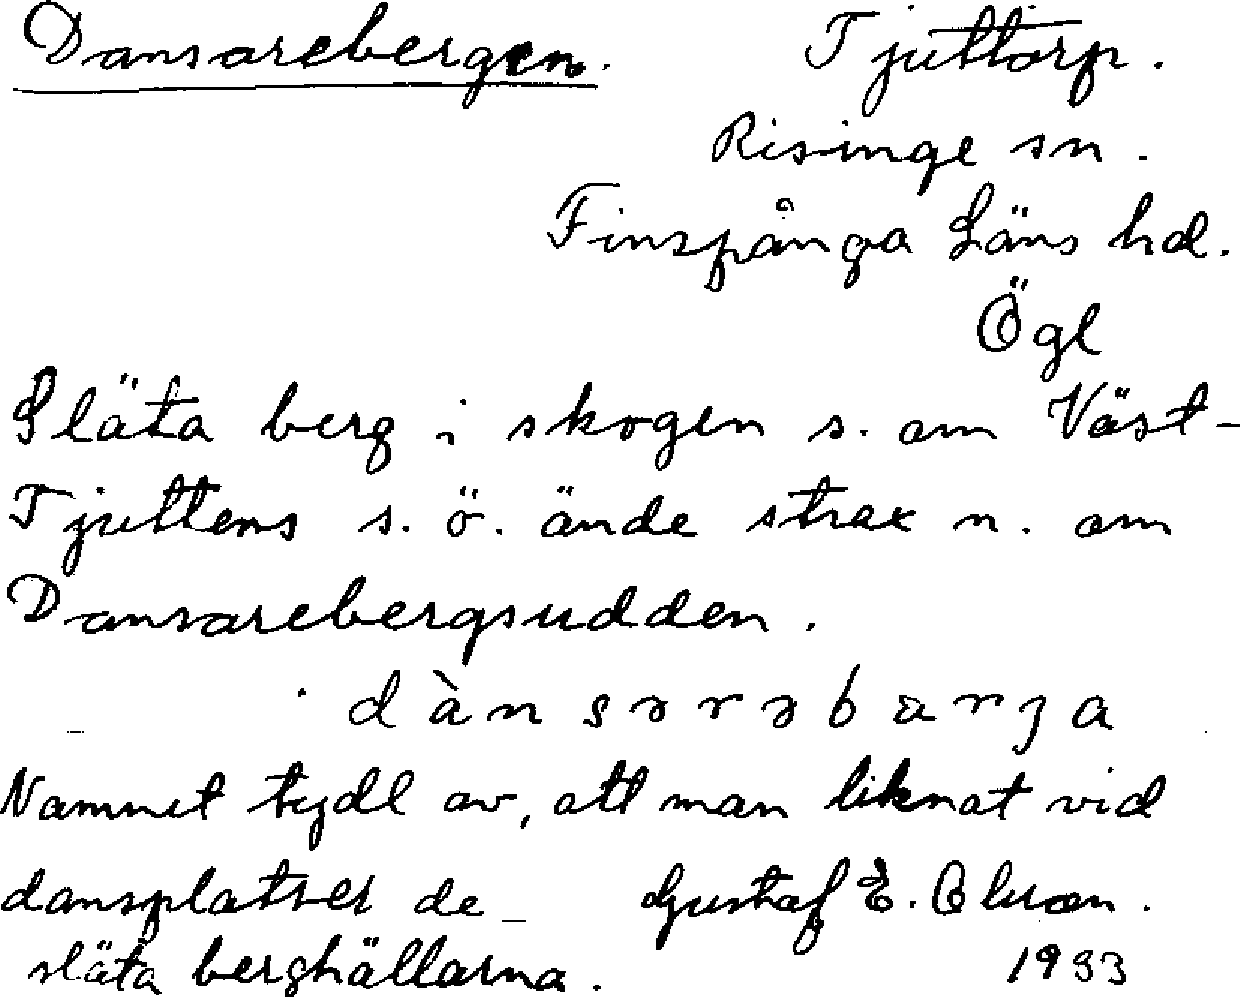 Dansarebergen. Tjuttorp.
Risinge sn.
Finspånga Läns hd.
Ögl
Släta berg i skogen s. om Väst-
Tjuttens s. ö. ände strax n. om
Dansarebergsudden.
dànsərəbærja
Namnet tydl av, att man liknat vid
dansplatser de Gustaf E. Olson.
släta berghällarna. 1933